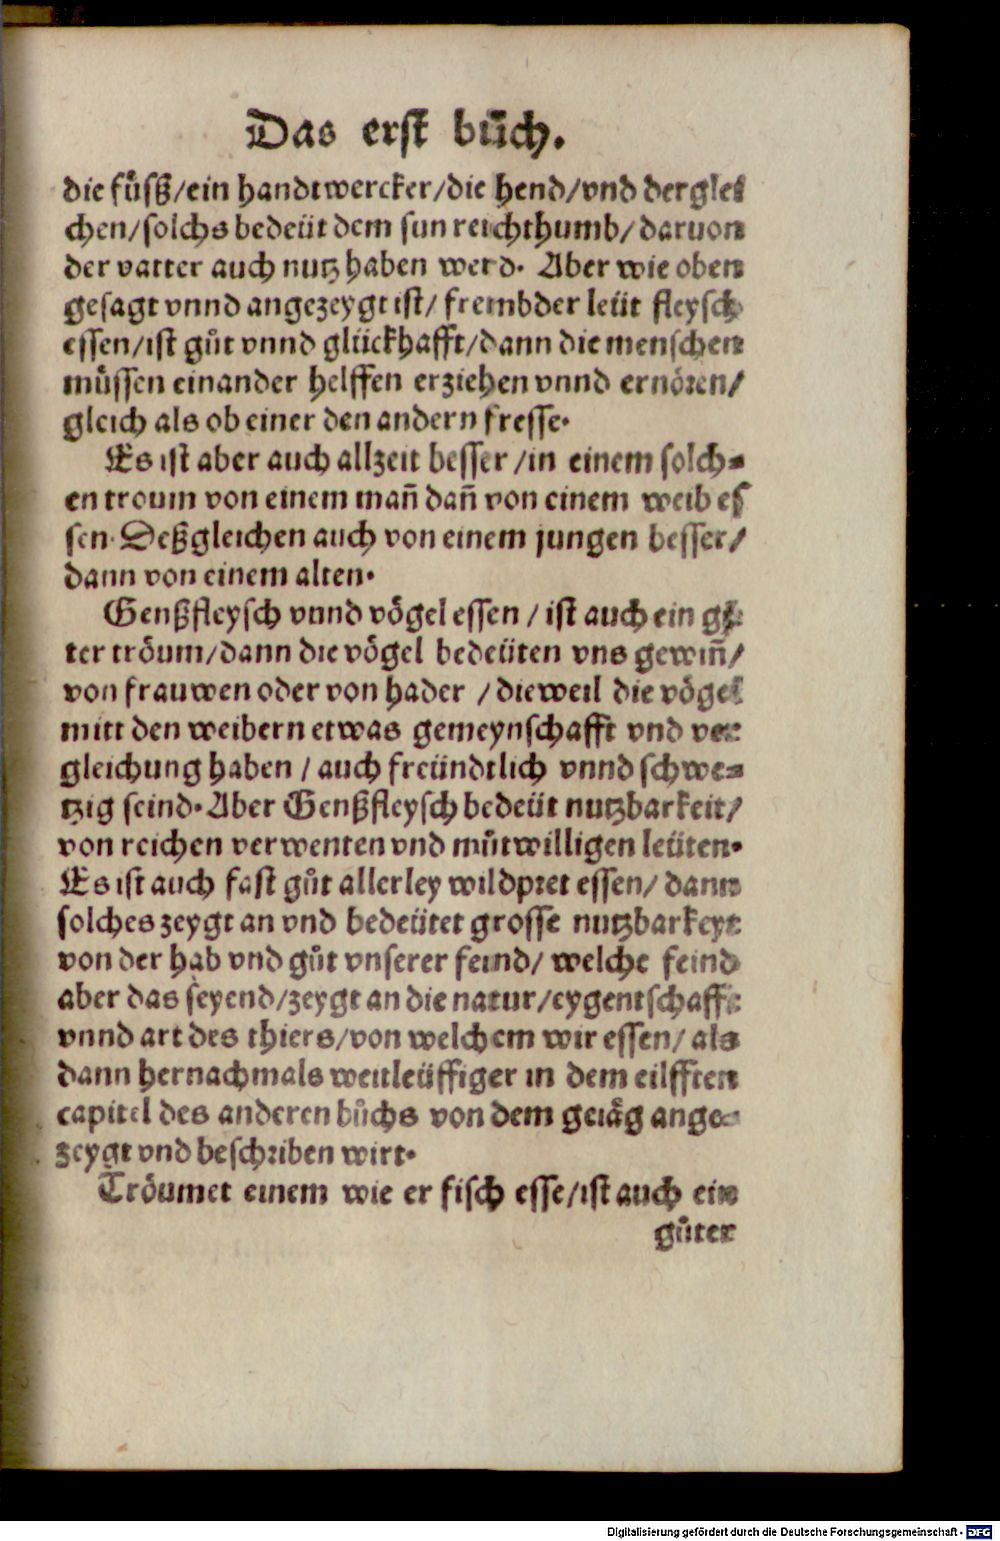 Das erst bůch.
die fůſß/ein handtwercker/die hend/vnd derglei
chen/ſolchs bedeüt dem ſun reichthumb/daruon
der vatter auch nutz haben werd. Aber wie oben
geſagt vnnd angezeygt iſt/ frembder leüt fleyſch
eſſen/iſt gůt vnnd glückhafft/dann die menſchen
můſſen einander helffen erziehen vnnd ernören/
gleich als ob einer den andern freſſe.
Es iſt aber auch allzeit beſſer/in einem ſolch-
en troum von einem mañ dañ von einem weib eſ
ſen. Deßgleichen auch von einem jungen beſſer/
dann von einem alten.
Genßfleyſch vnnd vögel eſſen / iſt auch ein gů
ter tröum/dann die vögel bedeüten vns gewiñ/
von frauwen oder von hader /dieweil die vögel
mitt den weibern etwas gemeynſchafft vnd ver
gleichung haben / auch freündtlich vnnd ſchwe-
tzig ſeind. Aber Genßfleyſch bedeüt nutzbarkeit/
von reichen verwenten vnd můtwilligen leüten.
Es iſt auch faſt gůt allerley wildpret eſſen/ dann
ſolches zeygt an vnd bedeütet groſſe nutzbarkeyt
von der hab vnd gůt vnſerer feind/ welche feind
aber das ſeyend/zeygt an die natur/eygentſchafft
vnnd art des thiers/von welchem wir eſſen/ als
dann hernachmals weitleüffiger in dem eilfften
capitel des anderen bůchs von dem geiäg ange-
zeygt vnd beſchriben wirt.
Tröumet einem wie er fiſch eſſe/iſt auch ein
gůter
Digitalisierung gefördert durch die Deutsche Forschungsgemeinschaft - DFG